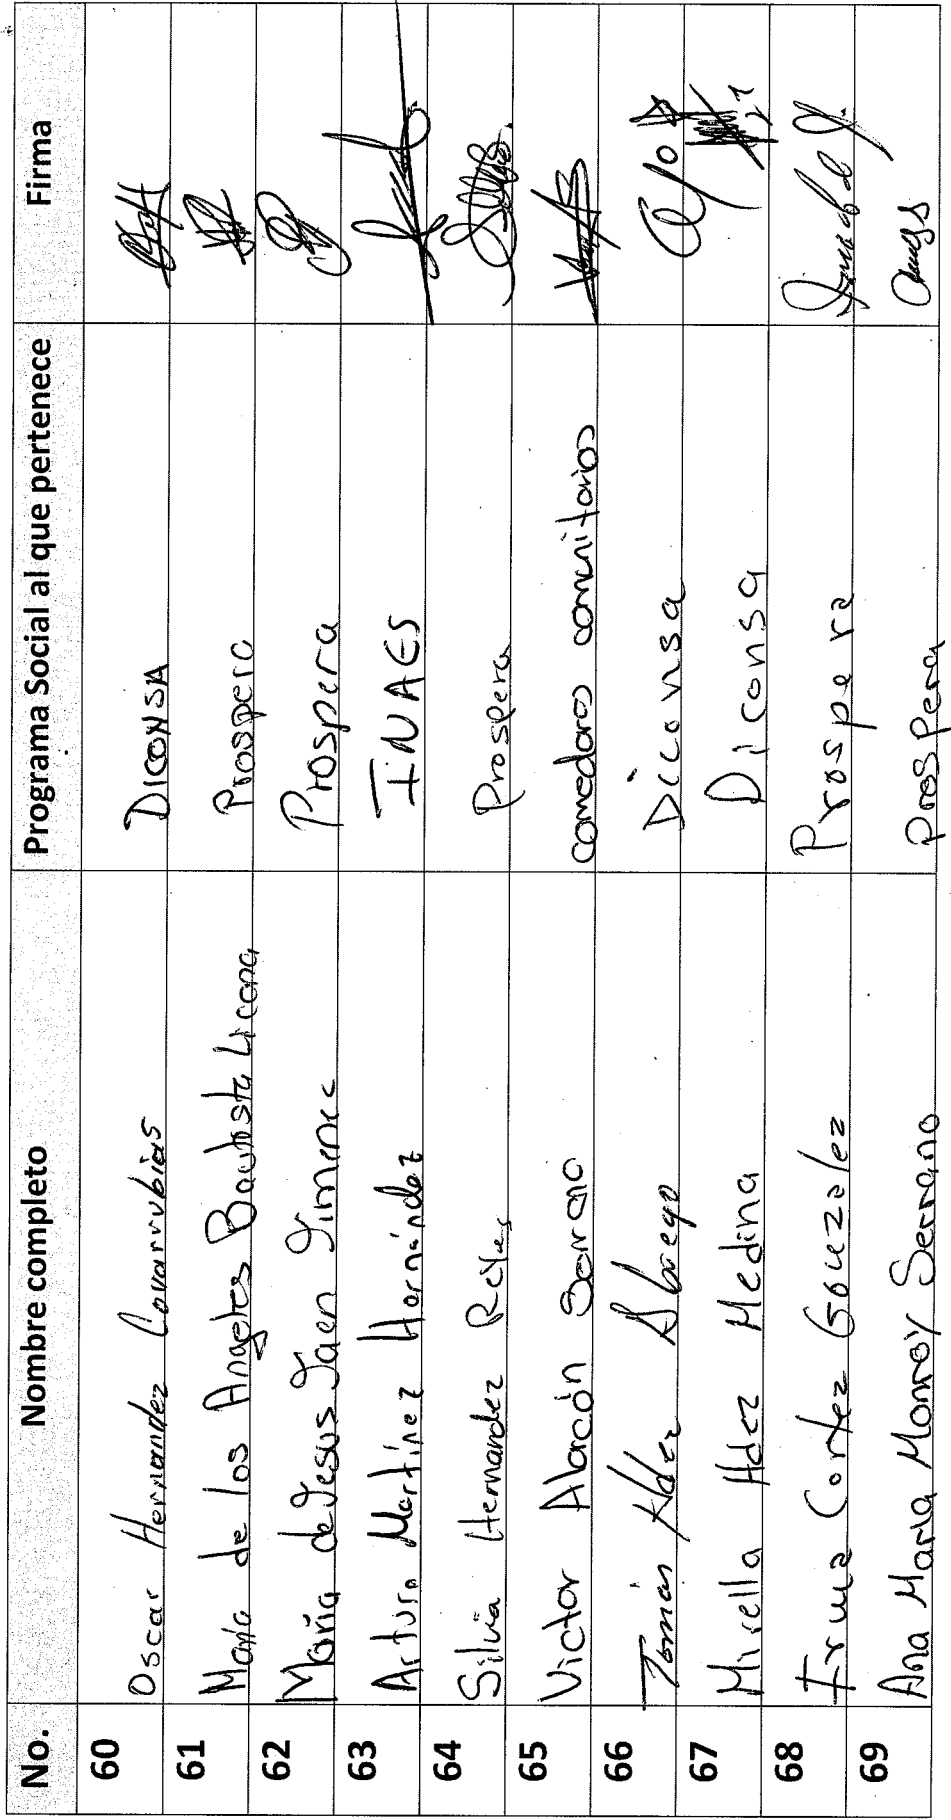 No. Nombre completo Programa Social al que pertenece Firma
60 Oscar Hernandez Covarrubias DICONSA
61 Maria de los Angeles Bautista Licona Prospera
62 María de Jesus Jaen Jimenez Prospera
63 Arturo Martínez Hernández INAES
64 Silvia Hernandez Reyes Prospera
65 Victor Alarcón Soriano comedores comunitarios
66 Tomás Hdez Diconsa
67 Mirella Hdez Medina Diconsa
68 Irma Cortez González Prospera
69 Ana María Monroy Serrano Prospera